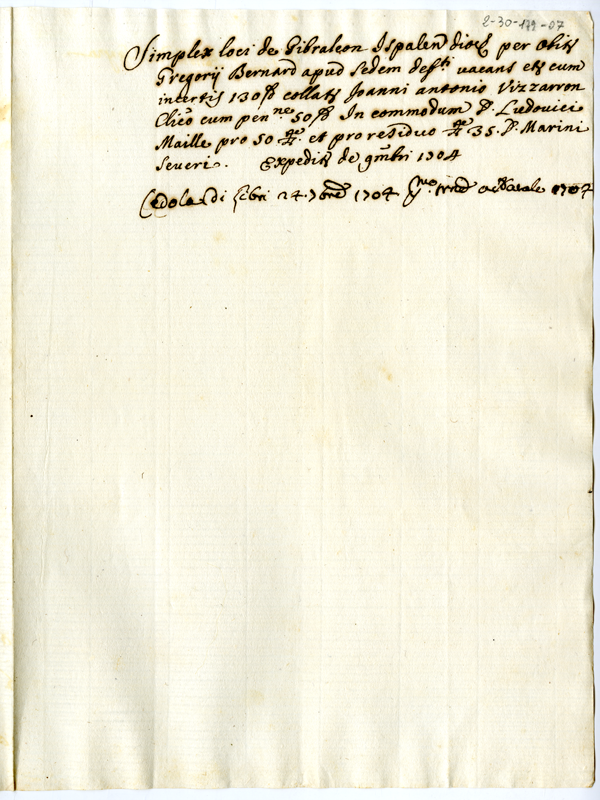 2-30-179-07
Simplex loci de Gibraleon Ispalen dioc per obit
Gregorij Bernard apud Sedem defti vacans et cum
incertis 130 collat Joanni antonio Vizzarron
Clico cum penne 50 In commodum D. Ludovici
Maille pro 50 et pro residuo 35. D. Marini
Severi. Expedit de 9mbri 1704
Cedola di 24. 7bre 1704 1704